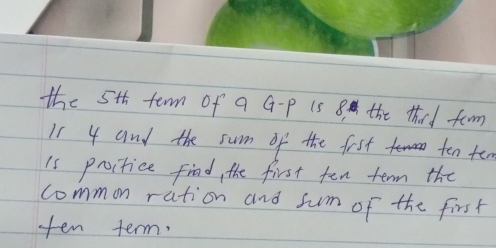 the 5th term of a G-P is 8, the third term
is 4 and the sum of the frst ten tem
is proitice find, the first ten term the
common ration and sum of the first
ten term.